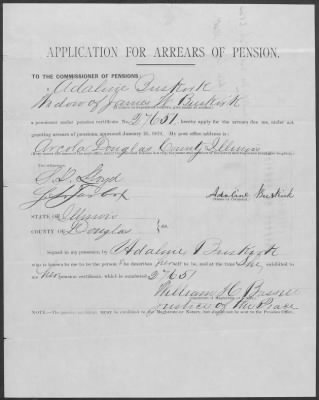 APPLICATION FOR ARREARS OF PENSION.
TO THE COMMISSIONER OF PENSIONS:
Adaline Buskirk
Widow of James W. Buskirk
a pensioner under pension certificate No. 27651, hereby apply for the arrears due me, under act
granting arrears of pensions, approved January 25, 1879. My post office address is:
Arcola Douglas County Illinois
Two witnesses:
Lloyd
Adaline Buskirk
STATE OF Illinois
COUNTY OF Douglas } ss:
Signed in my presence by Adaline Buskirk
who is known to me to be the person he describes herself to be, and at the same time she exhibited to
me her pension certificate, which is numbered 27651
William H.
Justice of the Peace
NOTE.—The pension certificate must be exhibited to the Magistrate or Notary, but should not be sent to the Pension Office.